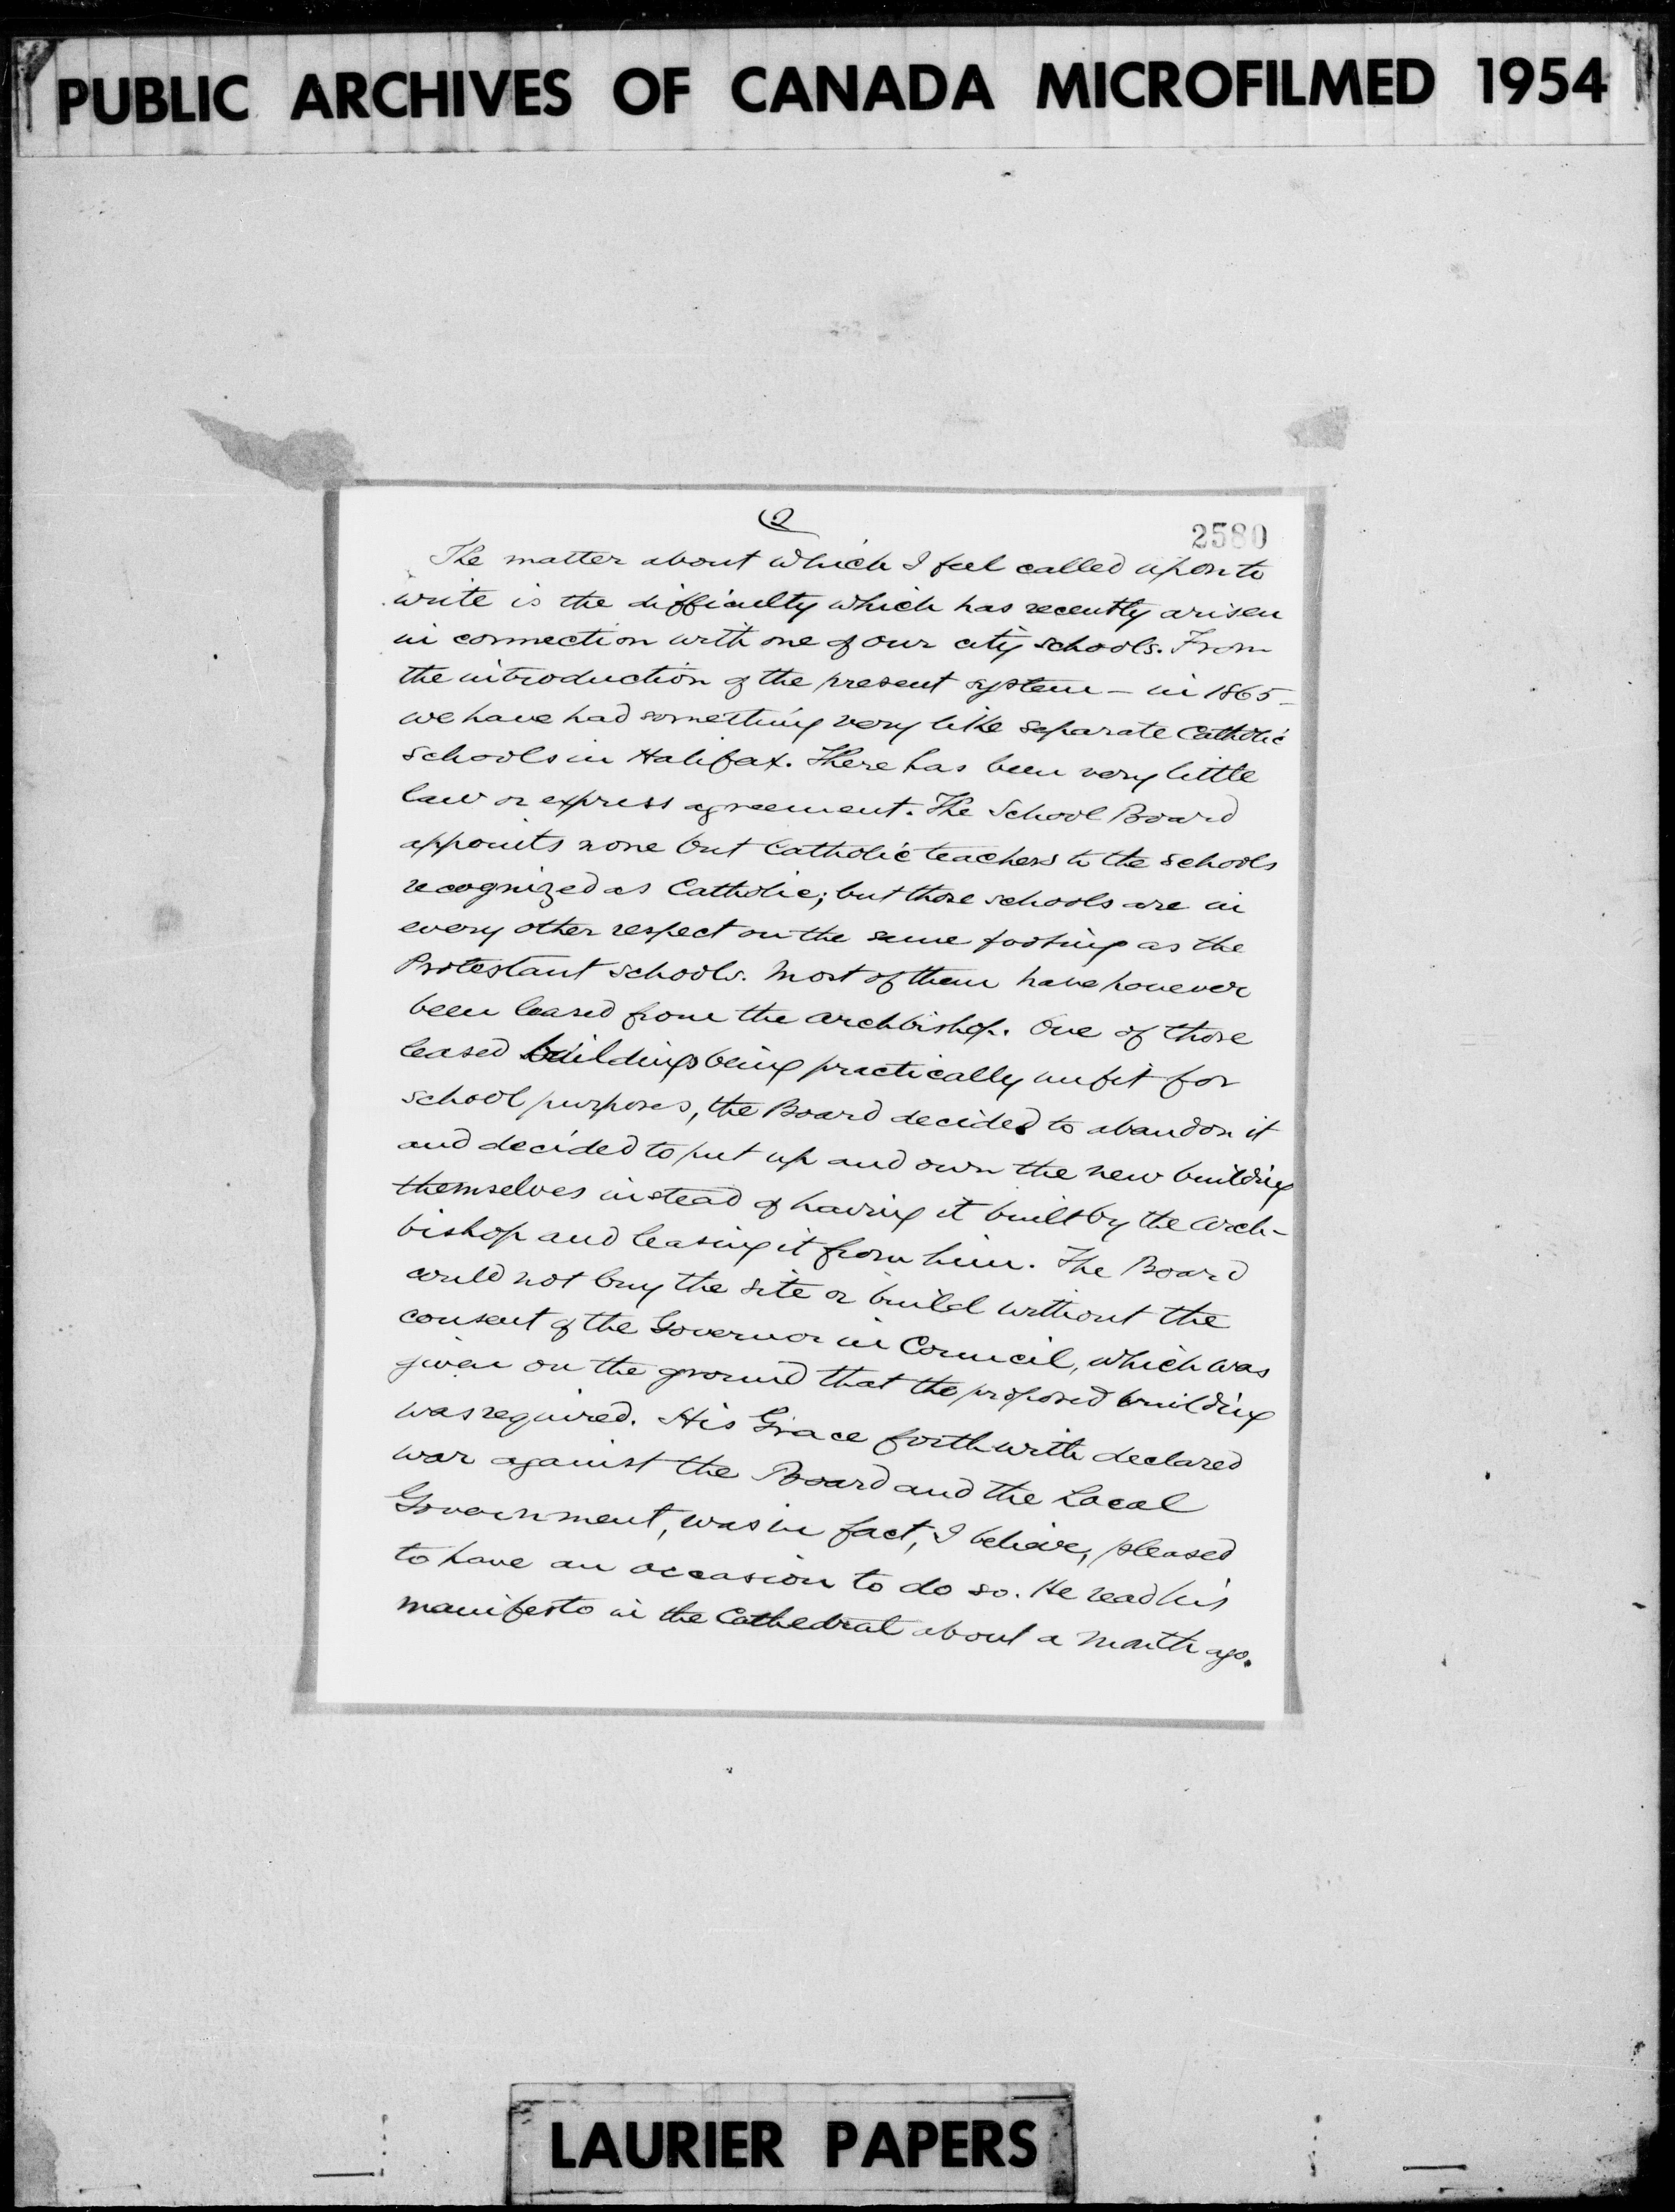 PUBLIC ARCHIVES OF CANADA MICROFILMED 1954
(2
2580
The matter about which I feel called upon to
write is the difficulty which has recently arisen
in connection with one of our city schools. From
the introduction of the present system – in 1865 –
we have had something very like separate Catholic
schools in Halifax. There has been very little
law or express agreement. The School Board
appoints none but Catholic teachers to the schools
recognized as Catholic; but those schools are in
every other respect on the same footing as the
Protestant schools. Most of them have however
been leased from the Archbishop. One of those
leased buildings being practically unfit for
school purposes, the Board decided to abandon it
and decided to put up and own the new building
themselves instead of having it built by the Arch-
bishop and leasing it from him. The Board
could not buy the site or build without the
consent of the Governor in Council, which was
given on the ground that the proposed building
was required. His Grace forthwith declared
war against the Board and the Local
Government, was in fact, I believe, pleased
to have an occasion to do so. He read his
manifesto in the Cathedral about a month ago.
LAURIER PAPERS